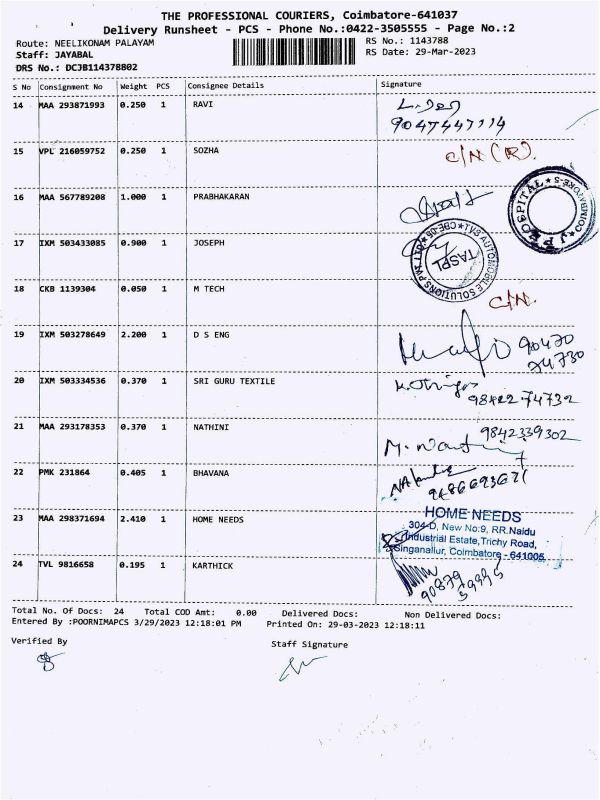 THE PROFESSIONAL COURIERS, Coimbatore-641037
Delivery Runsheet - PCS - Phone No.:0422-3505555 - Page No.:2
Route: NEELIKONAM PALAYAM RS No.: 1143788
Staff: JAYABAL RS Date: 29-Mar-2023
DRS No.: DCJB114378802
S No Consignment No Weight PCS Consignee Details Signature
14 MAA 293871993 0.250 1 RAVI
9047447114
15 VPL 216059752 0.250 1 SOZHA C/N (R).
16 MAA 567789208 1.000 1 PRABHAKARAN
J P HOSPITAL COIMBATORE-5
17 IXM 503433085 0.900 1 JOSEPH
TVS AUTOMOBILE SOLUTIONS PVT LTD CBE-05
TASPL
18 CKB 1139304 0.050 1 M TECH C/N.
19 IXM 503278649 2.200 1 D S ENG 90470
74730
20 IXM 503334536 0.370 1 SRI GURU TEXTILE
98422 74732
21 MAA 293178353 0.370 1 NATHINI 9842339302
22 PMK 231864 0.405 1 BHAVANA
9486693671
23 MAA 298371694 2.410 1 HOME NEEDS HOME NEEDS
304-D, New No:9, RR.Naidu
Industrial Estate,Trichy Road,
Singanallur, Coimbatore - 641005.
24 TVL 9816658 0.195 1 KARTHICK
90879
59995
Total No. Of Docs: 24 Total COD Amt: 0.00 Delivered Docs: Non Delivered Docs:
Entered By :POORNIMAPCS 3/29/2023 12:18:01 PM Printed On: 29-03-2023 12:18:11
Verified By Staff Signature